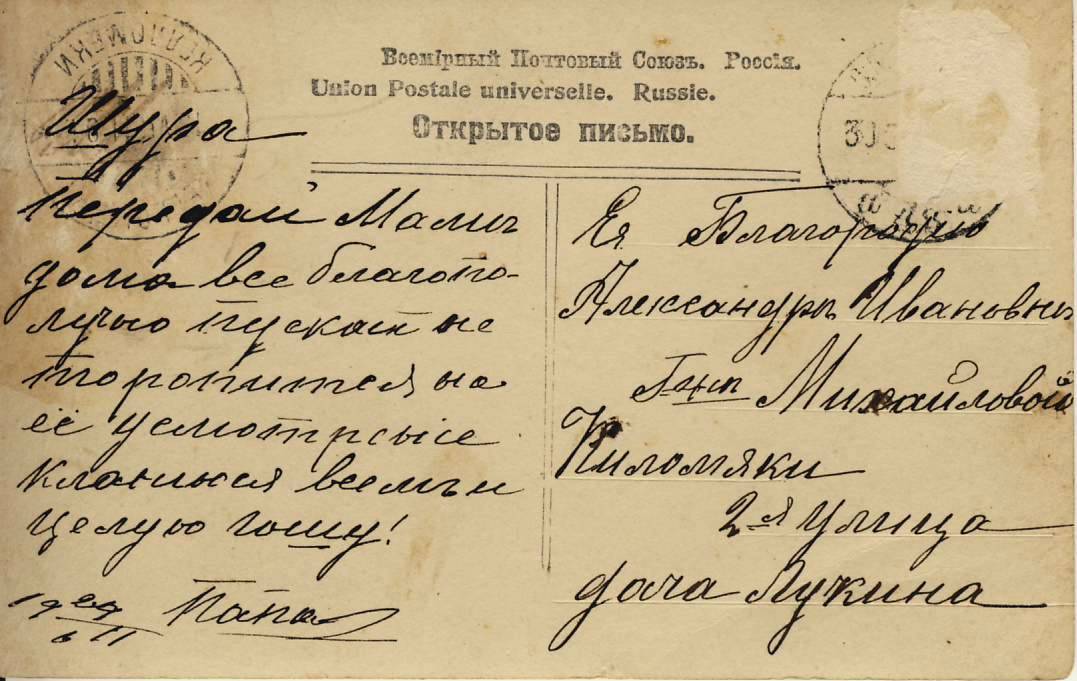 Всемірный Почтовый Союзъ. Россія.
Union Postale universelle. Russie.
Открытое письмо.
KELLOMÄKI
30
Шура
передай Мамѣ
дома все благопо-
лучно пускай не
торопится на
её усмотрение
кланюся всемъ и
целую Гошу!
Папа
19
6 II
Ея Благородию
Александрѣ Ивановнѣ
Госп Михайловой
Киломяки
2-я улица
дача Лукина